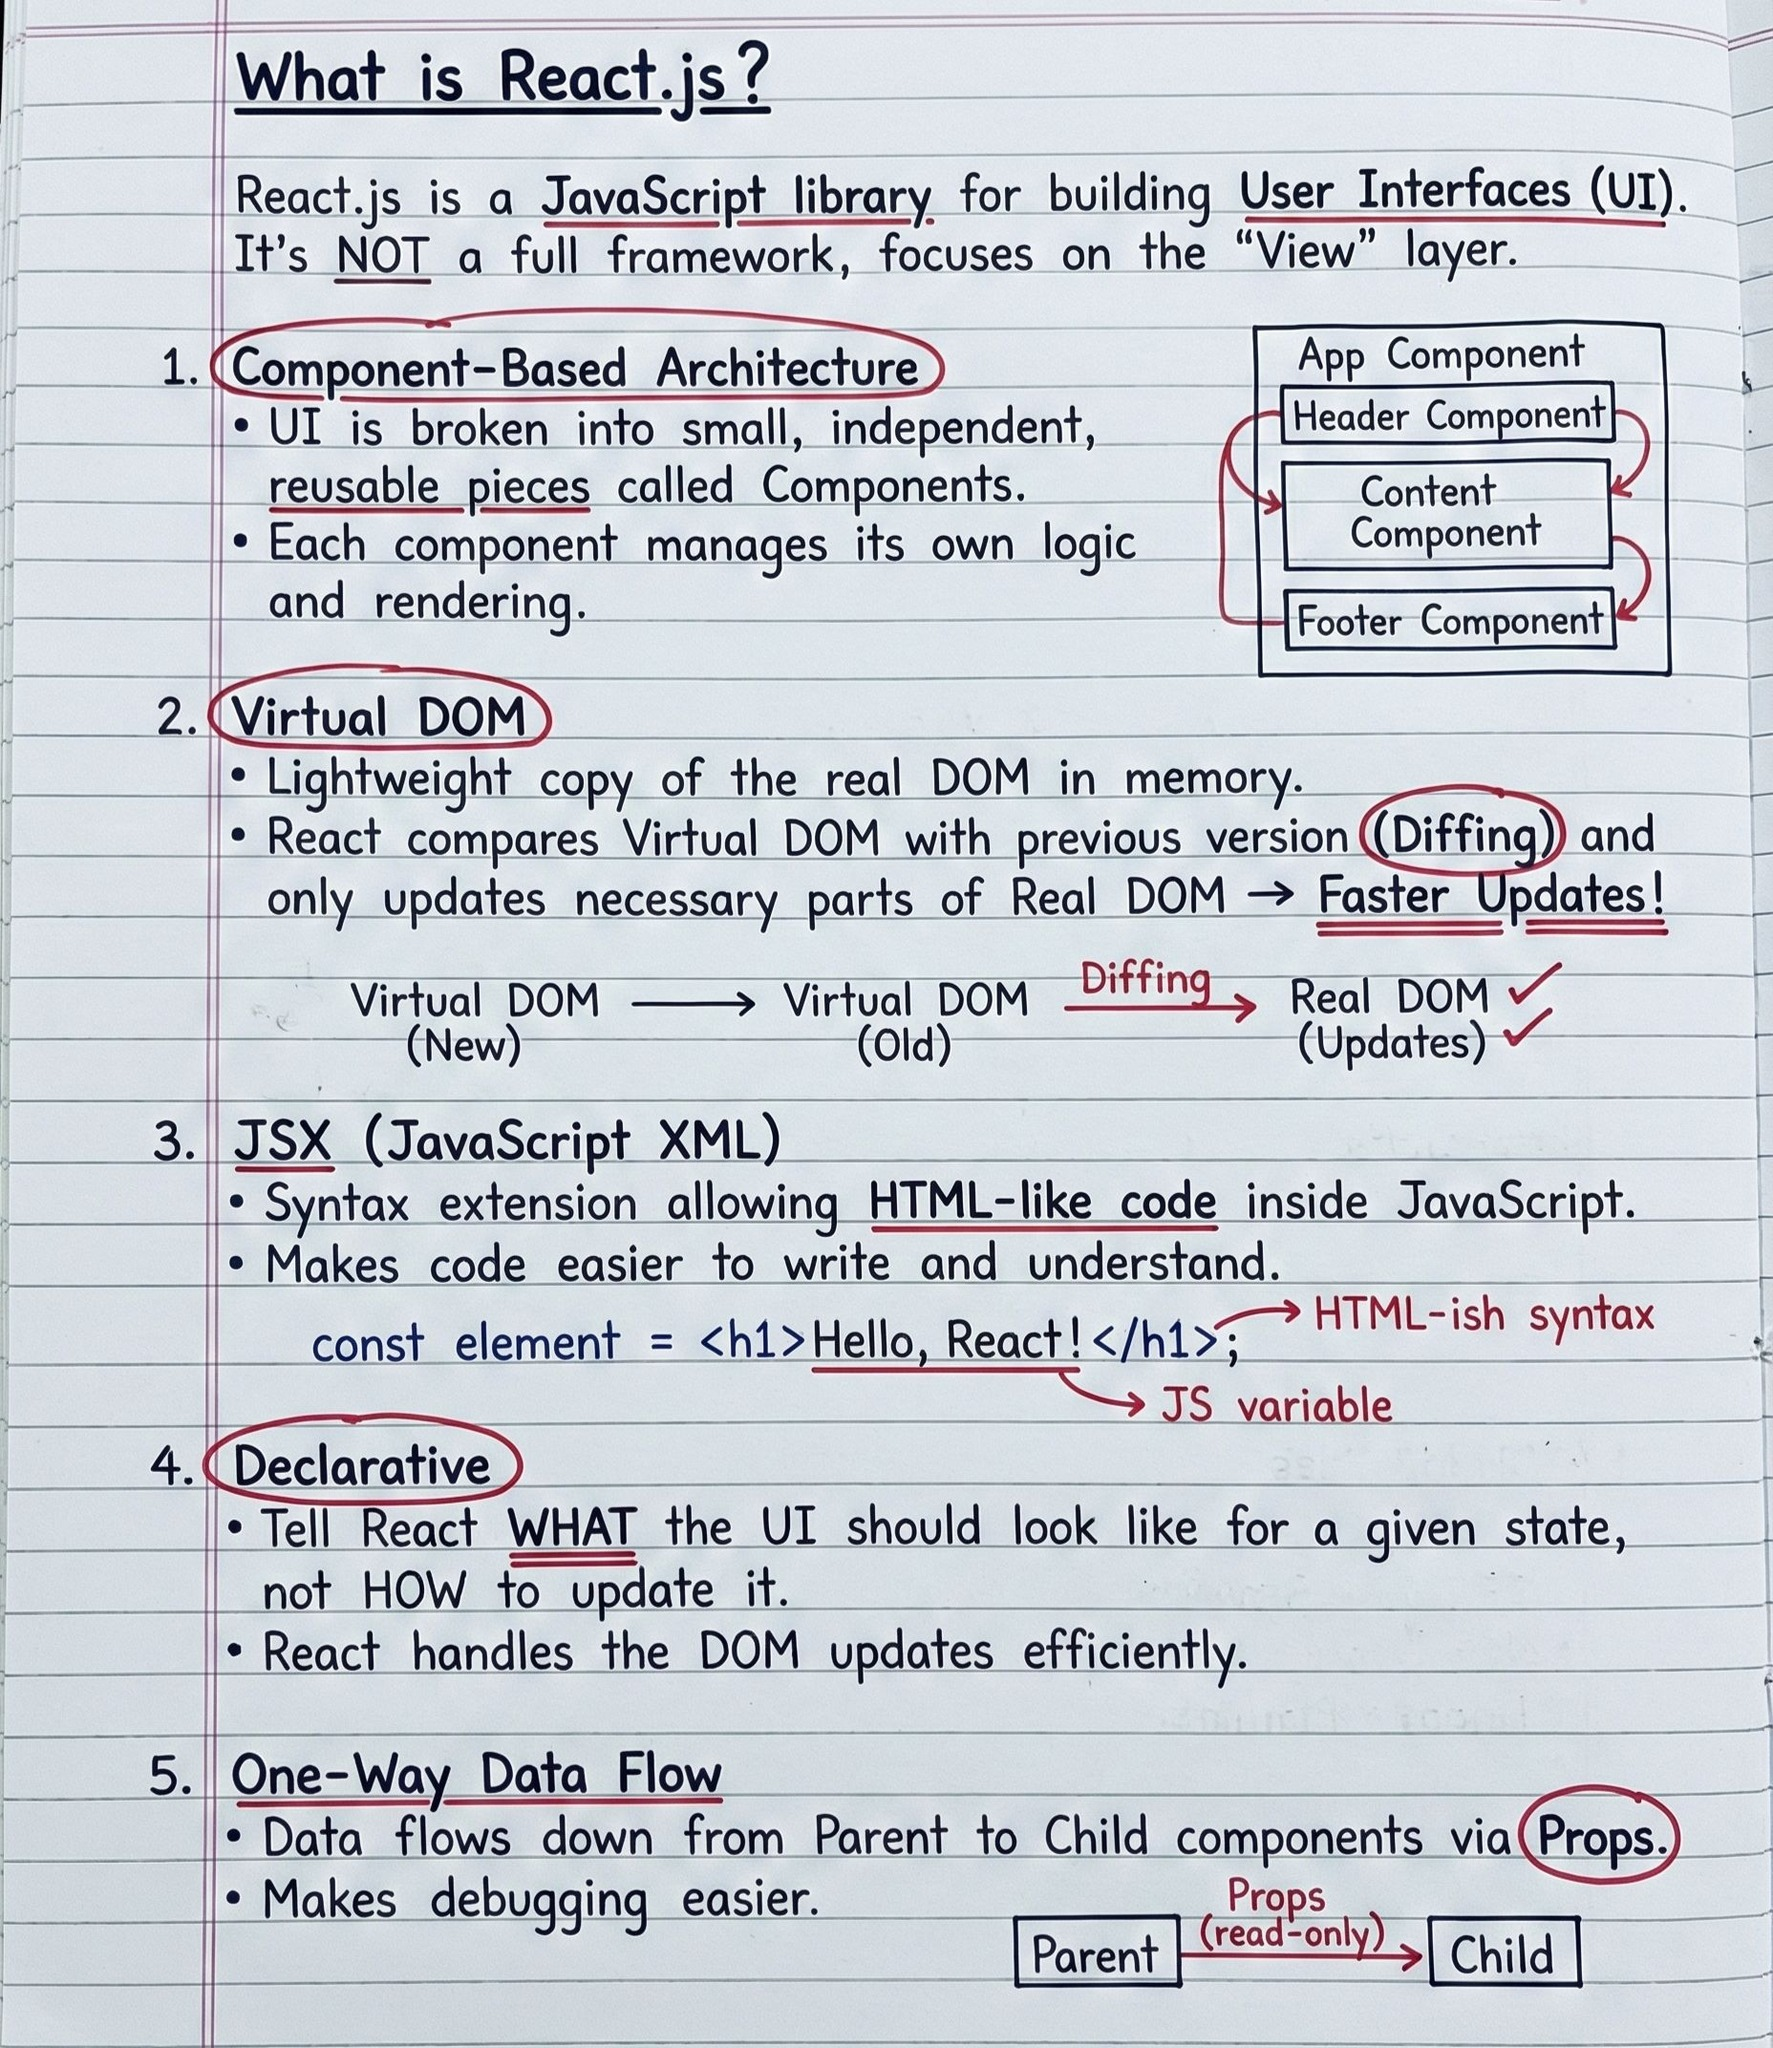 What is React.js?
React.js is a JavaScript library for building User Interfaces (UI).
It's NOT a full framework, focuses on the “View” layer.
1. Component-Based Architecture
• UI is broken into small, independent,
reusable pieces called Components.
• Each component manages its own logic
and rendering.
App Component
Header Component
Content
Component
Footer Component
2. Virtual DOM
• Lightweight copy of the real DOM in memory.
• React compares Virtual DOM with previous version (Diffing) and
only updates necessary parts of Real DOM → Faster Updates!
Virtual DOM → Virtual DOM Diffing → Real DOM ✓
(New) (Old) (Updates) ✓
3. JSX (JavaScript XML)
• Syntax extension allowing HTML-like code inside JavaScript.
• Makes code easier to write and understand.
const element = <h1>Hello, React!</h1>; → HTML-ish syntax
→ JS variable
4. Declarative
• Tell React WHAT the UI should look like for a given state,
not HOW to update it.
• React handles the DOM updates efficiently.
5. One-Way Data Flow
• Data flows down from Parent to Child components via Props.
• Makes debugging easier.
Props
(read-only)
Parent → Child